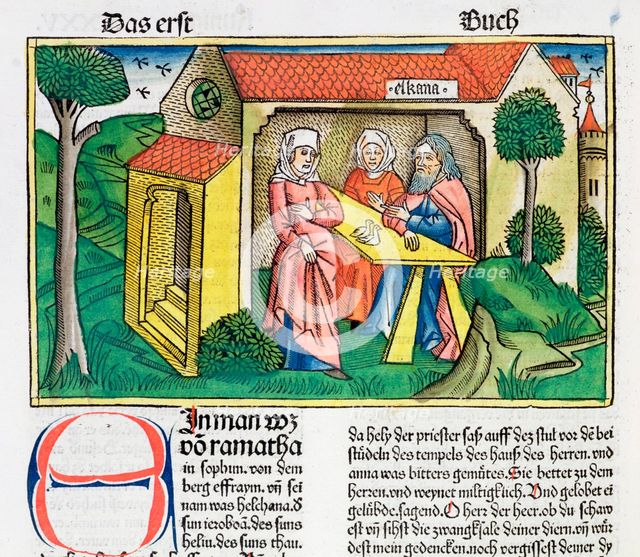 Das erst Buch
elkana
EInman wz
võ ramatha
in sophim. von dem
berg effraym. vñ sei
nam was helchana. d
sun ieroboã. des suns
heliu. des suns thau.
da hely der priester saß auff dez stul vor dẽ bei
stüdeln des tempels des hauß des herren. vnd
anna was bitters gemütes. Sie bettet zu dem
herren. vnd weynet miltiglich. Vnd gelobet ei
gelübde. sagend. O herz der heer. ob du schaw
est vñ sihst die zwangksale deiner diern. vñ würst
dest mein gedencken. noch vergissest deiner dy
heritage
Images